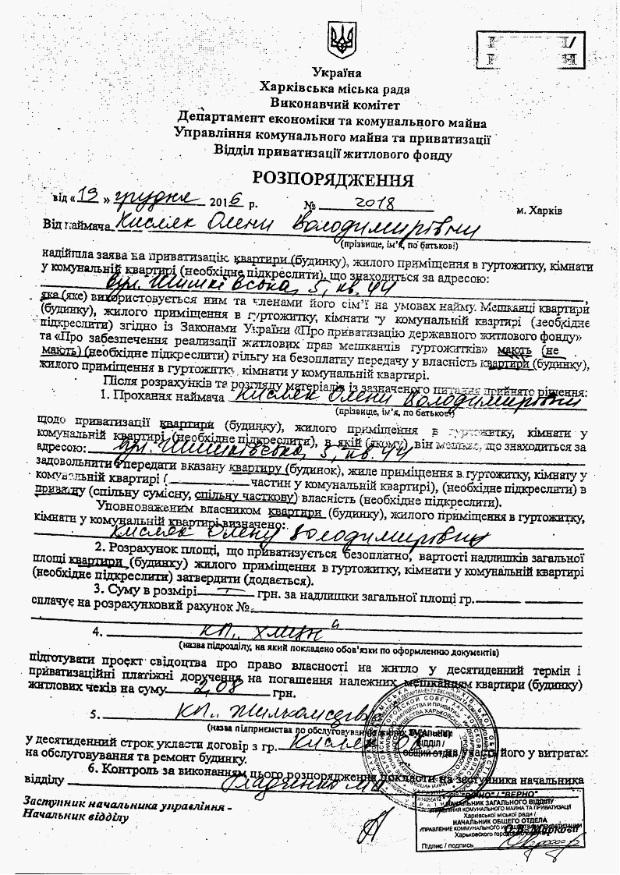 Україна
Харківська міська рада
Виконавчий комітет
Департамент економіки та комунального майна
Управління комунального майна та приватизації
Відділ приватизації житлового фонду
РОЗПОРЯДЖЕННЯ
від « 19 » грудня 2016 р. № 2018 м. Харків
Від наймача Кисляк Олени Володимирівни
(прізвище, ім'я, по батькові)
надійшла заява на приватизацію квартири (будинку), жилого приміщення в гуртожитку, кімнати
у комунальній квартирі (необхідне підкреслити), що знаходиться за адресою:
вул. Шишківська, 5, кв. 44
яка (яке) використовується ним та членами його сім'ї на умовах найму. Мешканці квартири
(будинку), жилого приміщення в гуртожитку, кімнати у комунальній квартирі (необхідне
підкреслити) згідно із Законами України «Про приватизацію державного житлового фонду»
та «Про забезпечення реалізації житлових прав мешканців гуртожитків» мають (не
мають) (необхідне підкреслити) пільгу на безоплатну передачу у власність квартири (будинку),
жилого приміщення в гуртожитку, кімнати у комунальній квартирі.
Після розрахунків та розгляду матеріалів із зазначеного питання прийнято рішення:
1. Прохання наймача Кисляк Олени Володимирівни
(прізвище, ім'я, по батькові)
щодо приватизації квартири (будинку), жилого приміщення в гуртожитку, кімнати у
комунальній квартирі (необхідне підкреслити), в якій (якому) він мешкає, що знаходиться за
адресою: вул. Шишківська, 5, кв. 44
задовольнити і передати вказану квартиру (будинок), жиле приміщення в гуртожитку, кімнату у
комунальній квартирі ( частин у комунальній квартирі), (необхідне підкреслити) в
приватну (спільну сумісну, спільну часткову) власність (необхідне підкреслити).
Уповноваженим власником квартири (будинку), жилого приміщення в гуртожитку,
кімнати у комунальній квартирі визначено:
Кисляк Олену Володимирівну
2. Розрахунок площі, що приватизується безоплатно, вартості надлишків загальної
площі квартири (будинку) жилого приміщення в гуртожитку, кімнати у комунальній квартирі
(необхідне підкреслити) затвердити (додається).
3. Суму в розмірі — грн. за надлишки загальної площі гр.
сплачує на розрахунковий рахунок №
4. КП
(назва підрозділу, на який покладено обов'язки по оформленню документів)
підготувати проект свідоцтва про право власності на житло у десятиденний термін і
приватизаційні платіжні доручення на погашення належних мешканцям квартири (будинку)
житлових чеків на суму 2,08 грн.
5. КП Жилкомсервіс
(назва підприємства по обслуговуванню
у десятиденний строк укласти договір з гр. Кисляк О.В. на участь його у витратах
на обслуговування та ремонт будинку.
6. Контроль за виконанням цього розпорядження покласти на заступника начальника
відділу
Заступник начальника управління -
Начальник відділу
"ВІРНО" / "ВЕРНО"
НАЧАЛЬНИК ЗАГАЛЬНОГО ВІДДІЛУ
УПРАВЛІННЯ КОМУНАЛЬНОГО МАЙНА ТА ПРИВАТИЗАЦІЇ
Харківської міської ради /
НАЧАЛЬНИК ОБЩЕГО ОТДЕЛА
Підпис / подпись